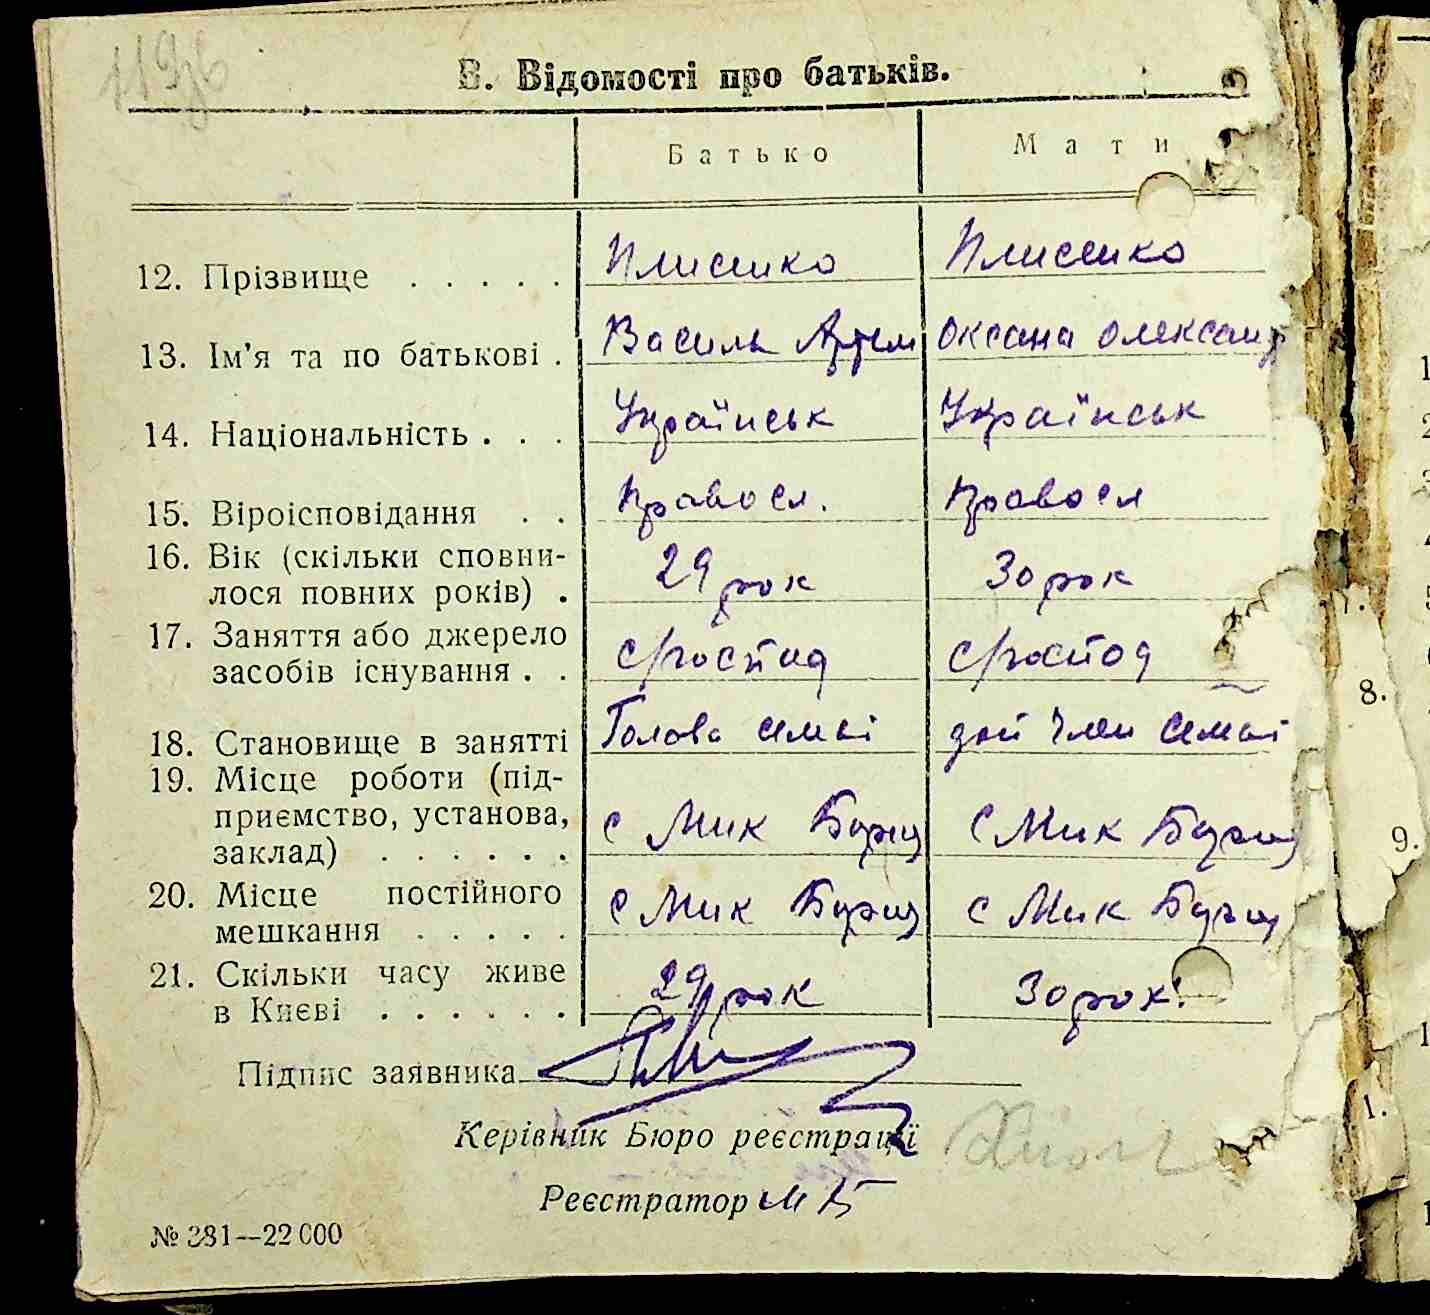 В. Відомості про батьків.
Батько Мати
12. Прізвище . . . . . Плисенко Плисенко
13. Ім'я та по батькові . Василь Артем Оксана Олександ
14. Національність . . . Українськ Українськ
15. Віроісповідання . . Правосл. Правосл
16. Вік (скільки сповни-
лося повних років) . 29 рок 30 рок
17. Заняття або джерело
засобів існування . . с/господ с/господ
18. Становище в занятті Голова семьі доп член семьі
19. Місце роботи (під-
приємство, установа,
заклад) . . . . . . с Мик Борщ с Мик Борщ
20. Місце постійного
мешкання . . . . . с Мик Борщ с Мик Борщ
21. Скільки часу живе
в Києві . . . . . . 29 рок 30 рок.
Підпис заявника
Керівник Бюро реєстрації
Реєстратор
№ 381—22 000
8.
9.
1.